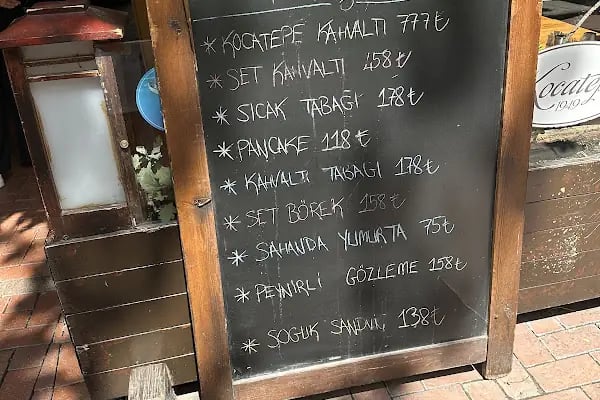 * KOCATEPE KAHVALTI 777₺
* SET KAHVALTI 458₺
* SICAK TABAĞI 178₺
* PANCAKE 118₺
* KAHVALTI TABAĞI 178₺
* SET BÖREK 158₺
* SAHANDA YUMURTA 75₺
* PEYNİRLİ GÖZLEME 158₺
* SOĞUK SANDUİÇ 138₺
Kocatepe
1949